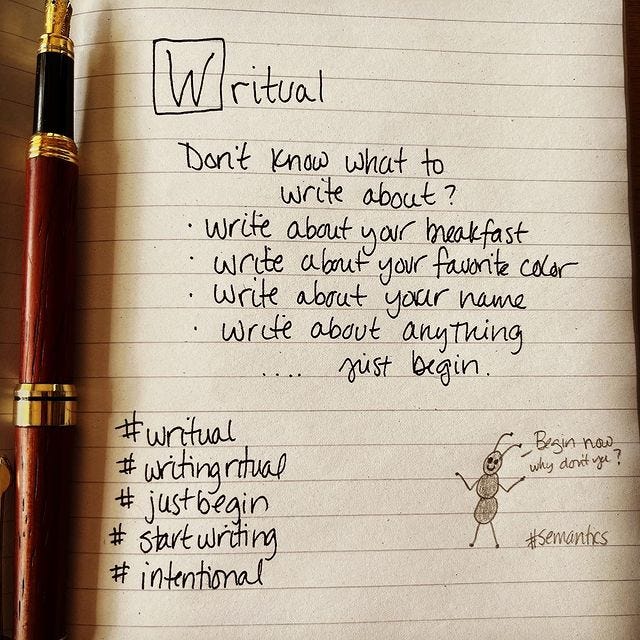 Writual
Don't know what to
write about?
· write about your breakfast
· write about your favorite color
· write about your name
· write about anything
.... just begin.
#writual
#writingritual
# justbegin
# startwriting
# intentional
Begin now
why don't you?
#semantics